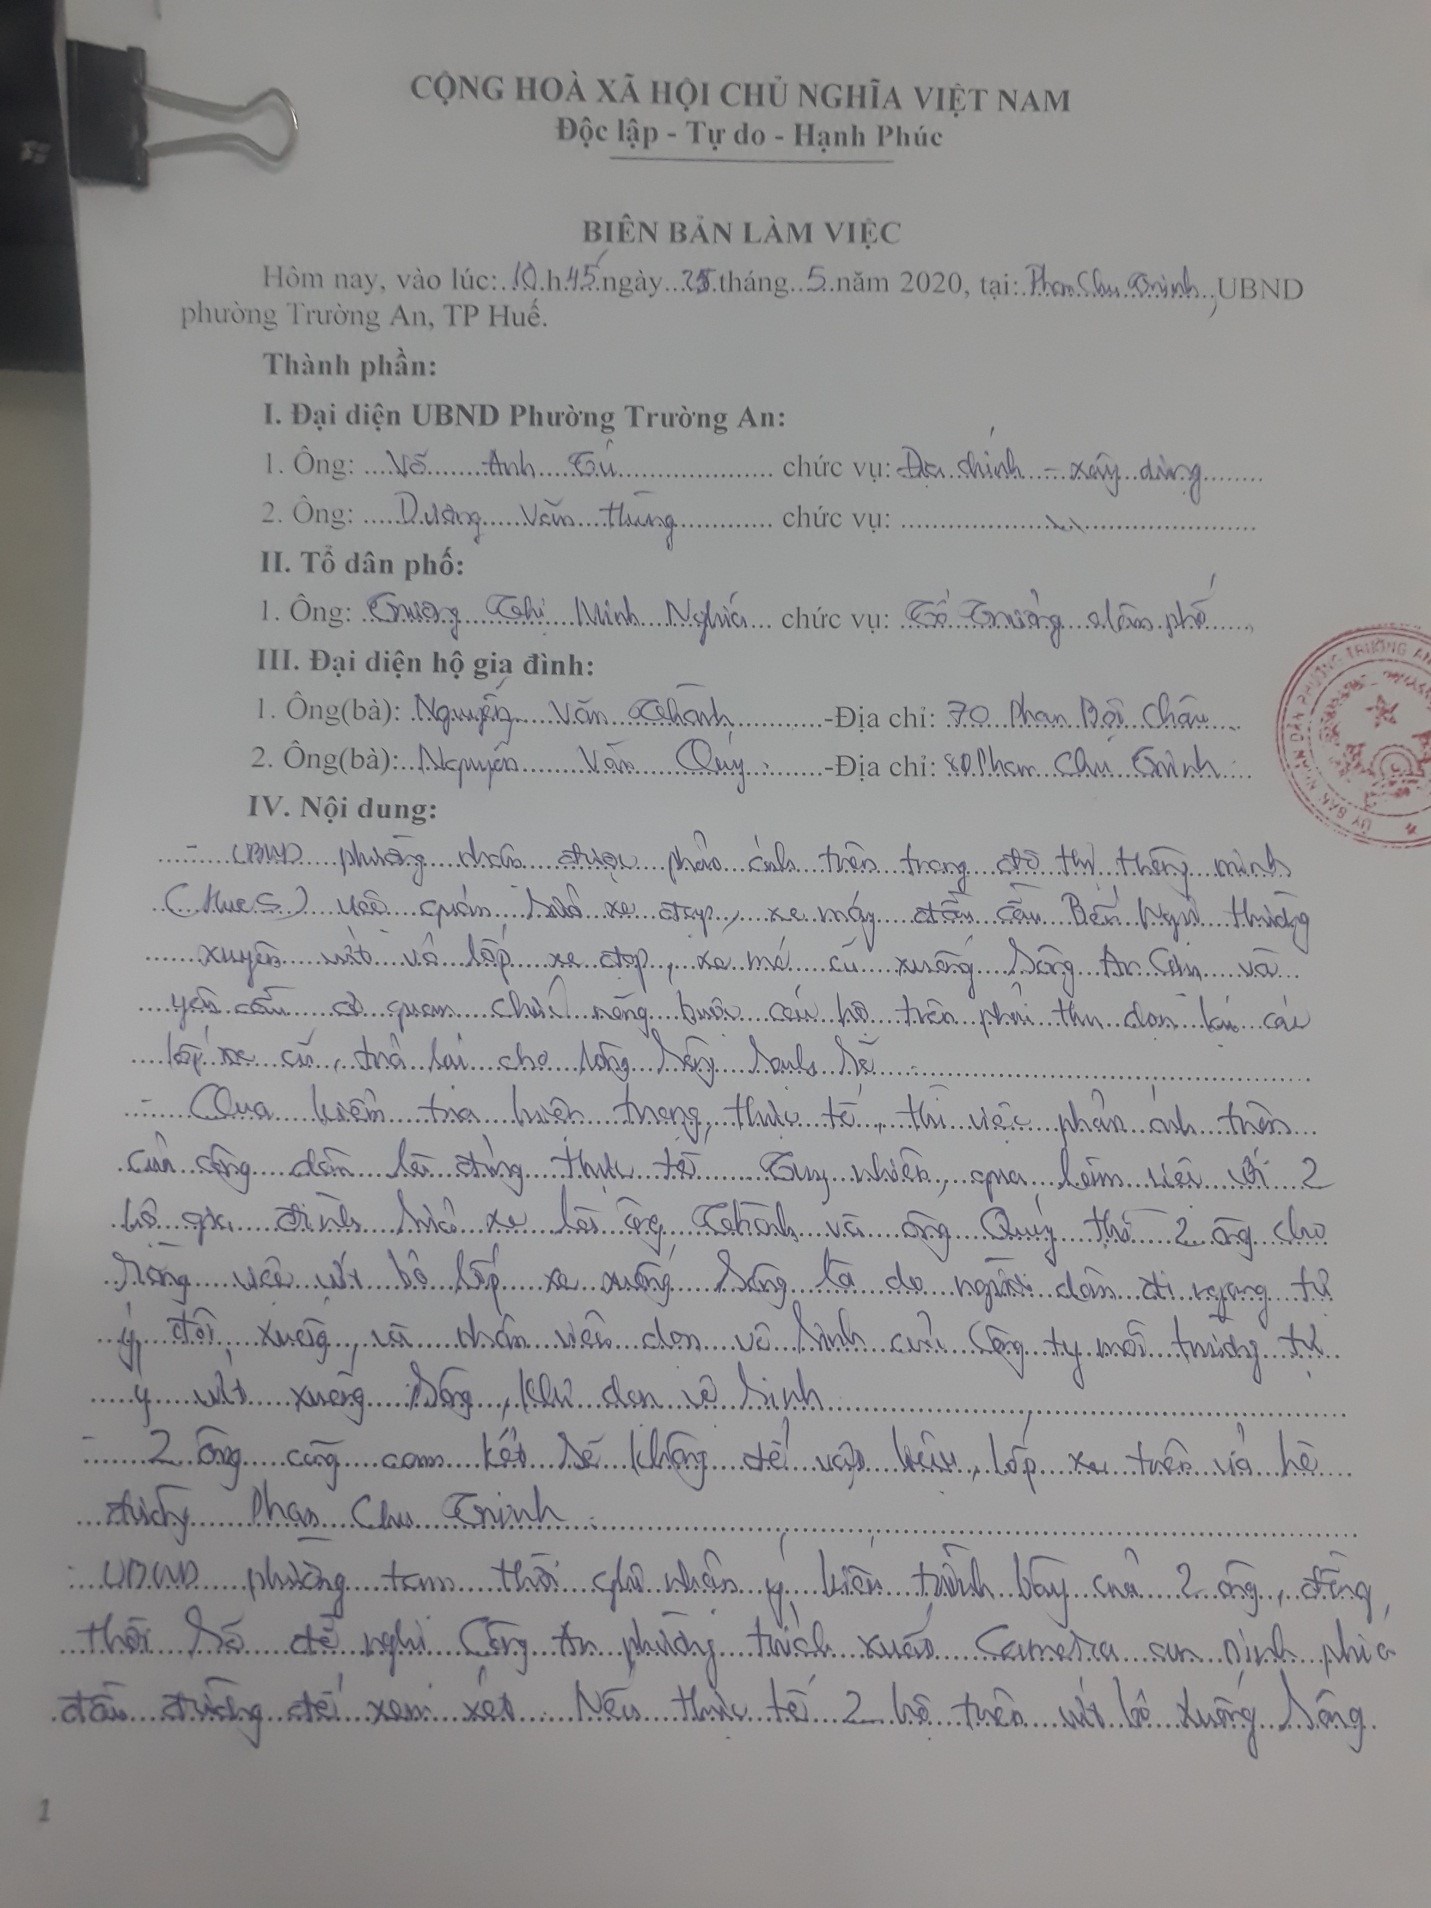 CỘNG HOÀ XÃ HỘI CHỦ NGHĨA VIỆT NAM
Độc lập - Tự do - Hạnh Phúc
BIÊN BẢN LÀM VIỆC
Hôm nay, vào lúc: 10 h 45 ngày tháng 5 năm 2020, tại: Phan Chu Trinh, UBND
phường Trường An, TP Huế.
Thành phần:
I. Đại diện UBND Phường Trường An:
1. Ông: Võ Anh Tú chức vụ: Địa chính - xây dựng
2. Ông: Dương Văn Hùng chức vụ:
II. Tổ dân phố:
1. Ông: Trương Thị Minh Nghĩa chức vụ: Tổ Trưởng dân phố
III. Đại diện hộ gia đình:
1. Ông(bà): Nguyễn Văn Thành -Địa chỉ: 70 Phan Bội Châu
2. Ông(bà): Nguyễn Văn Quý -Địa chỉ: 80 Phan Chu Trinh
IV. Nội dung:
- UBND phường nhận được phản ánh trên trang đô thị thông minh
(Hue S) việc quán sửa xe đạp, xe máy đầu cầu Bến Ngự thường
xuyên vứt vỏ lốp xe đạp, xe máy cũ xuống sông An Cựu và
yêu cầu cơ quan chức năng buộc các hộ trên phải thu dọn lại các
lốp xe cũ, trả lại cho lòng sông sạch sẽ
- Qua kiểm tra hiện trạng, thực tế, thì việc phản ánh trên
của công dân là đúng thực tế. Tuy nhiên, qua làm việc với 2
hộ gia đình sửa xe là ông Thành và ông Quý thì 2 ông cho
rằng việc vứt bỏ lốp xe xuống sông là do người dân đi ngang tự
ý xuống, và nhân viên dọn vệ sinh của công ty môi trường tự
ý vứt xuống sông, khi dọn vệ sinh
- 2 ông cũng cam kết sẽ không để vật liệu, lốp xe trên vỉa hè
đường Phan Chu Trinh.
- UBND phường tạm thời ghi nhận ý kiến trình bày của 2 ông, đồng
thời sẽ đề nghị Công An phường trích xuất Camera an ninh phía
đầu đường để xem xét. Nếu thực tế 2 hộ trên vứt bỏ xuống sông
1
ỦY BAN NHÂN DÂN PHƯỜNG TRƯỜNG AN